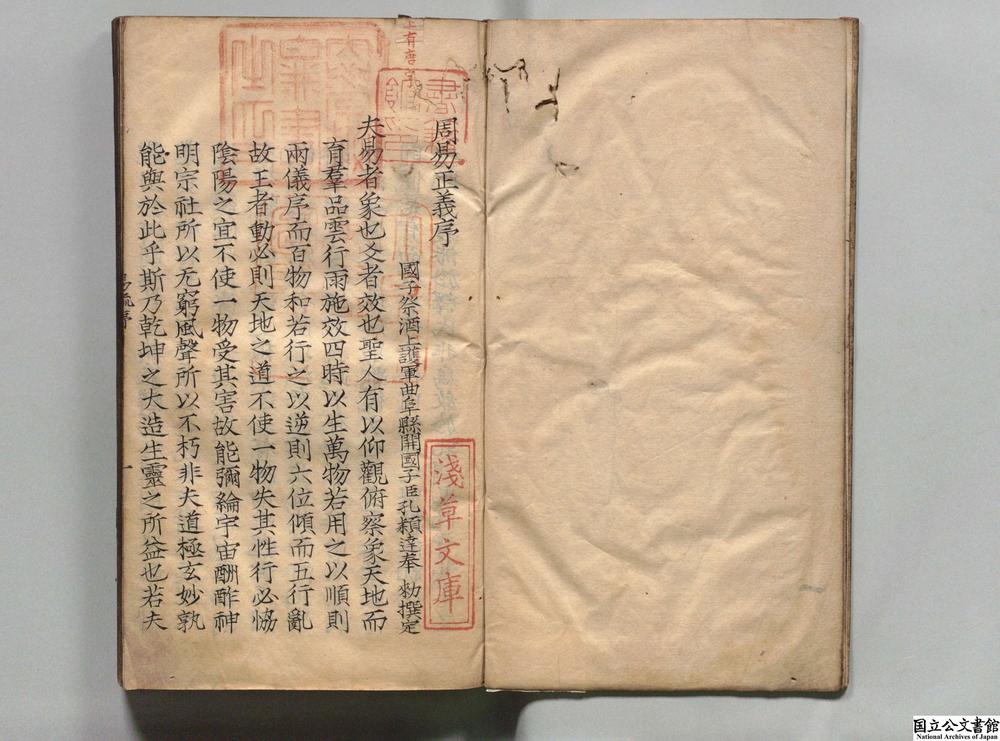 周易正義序
國子祭酒上護軍曲阜縣開國子臣孔穎達奉 勑撰定
夫易者象也爻者效也聖人有以仰觀俯察象天地而
育羣品雲行雨施效四時以生萬物若用之以順則
兩儀序而百物和若行之以逆則六位傾而五行亂
故王者動必則天地之道不使一物失其性行必恊
陰陽之宜不使一物受其害故能彌綸宇宙酬酢神
明宗社所以无窮風聲所以不朽非夫道極玄妙孰
能與於此乎斯乃乾坤之大造生靈之所益也若夫
淺草文庫
易疏序
一
国立公文書館
National Archives of Japan